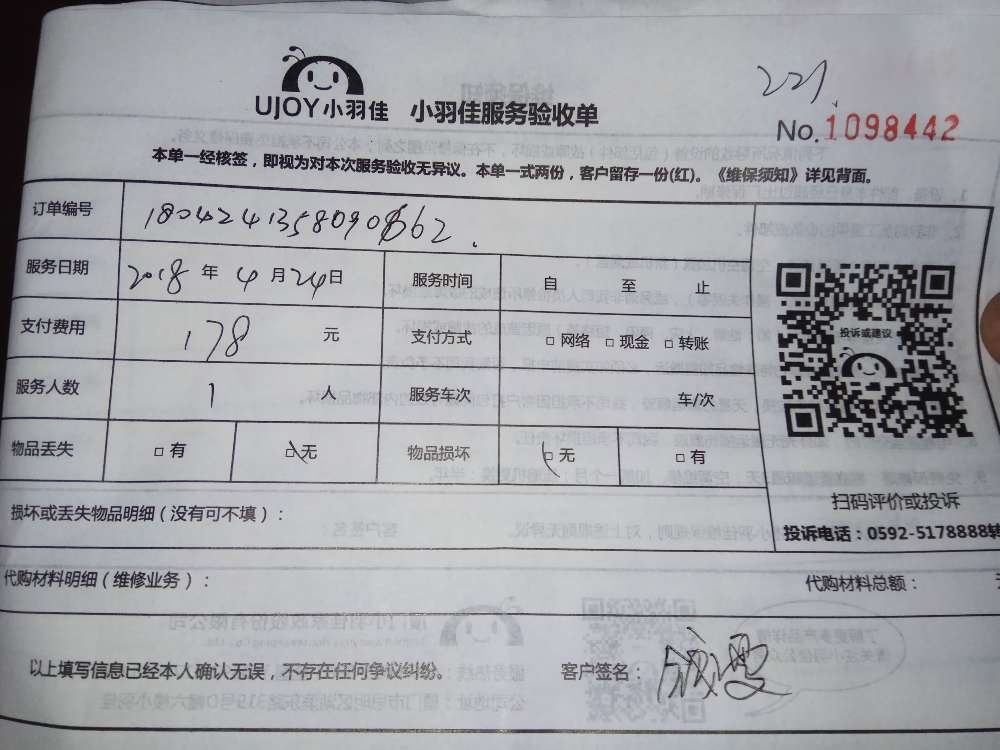 221
UJOY小羽佳 小羽佳服务验收单
No.1098442
本单一经核签，即视为对本次服务验收无异议。本单一式两份，客户留存一份(红)。《维保须知》详见背面。
订单编号
服务日期 2018 年 4 月 24 日 服务时间 自 至 止
支付费用 178 元 支付方式 □ 网络 □ 现金 □ 转账
服务人数 1 人 服务车次 车/次
物品丢失 □ 有 □ 无 物品损坏 □ 无 □ 有
投诉或建议
扫码评价或投诉
投诉电话：0592-5178888转
损坏或丢失物品明细（没有可不填）：
代购材料明细（维修业务）： 代购材料总额：
以上填写信息已经本人确认无误，不存在任何争议纠纷。 客户签名：